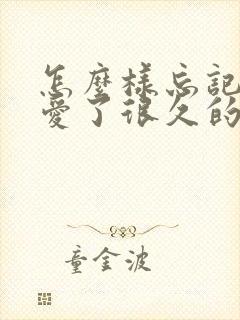 怎麼樣忘記
愛了很久的
童金波